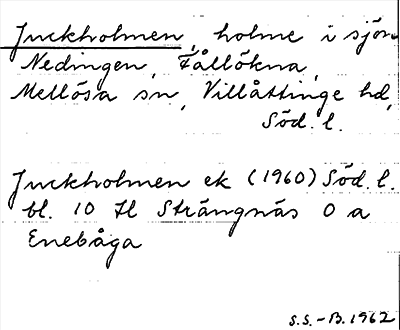 Juckholmen, holme i sjön
Nedingen, Fållökna,
Mellösa sn, Villåttinge hd,
Söd. l.
Juckholmen ek (1960) Söd. l.
bl. 10 Il Strängnäs O a
Enebåga
S.S.-B. 1962